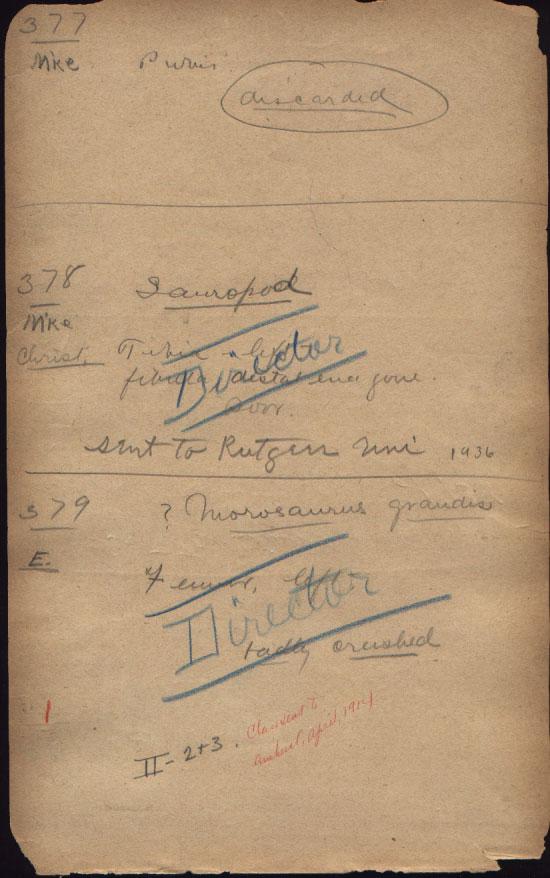 377
Mke Pubis
discarded
378 Sauropod
Mke
Christ. Tibia &
fibula distal end gone
Director
poor.
Sent to Rutgers Uni 1936
379 ? Morosaurus grandis
E.
Femur,
Director
badly crushed
II - 2+3. Claw sent to
Amherst, April, 1914